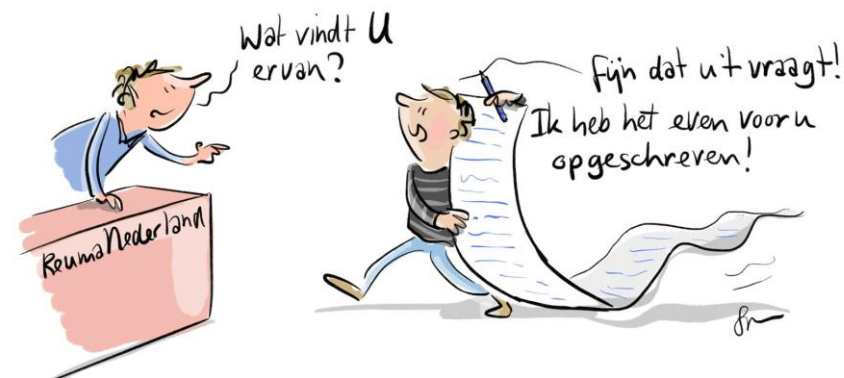 Wat vindt U
ervan?
Fijn dat u 't vraagt!
Ik heb het even voor u
opgeschreven!
ReumaNederland